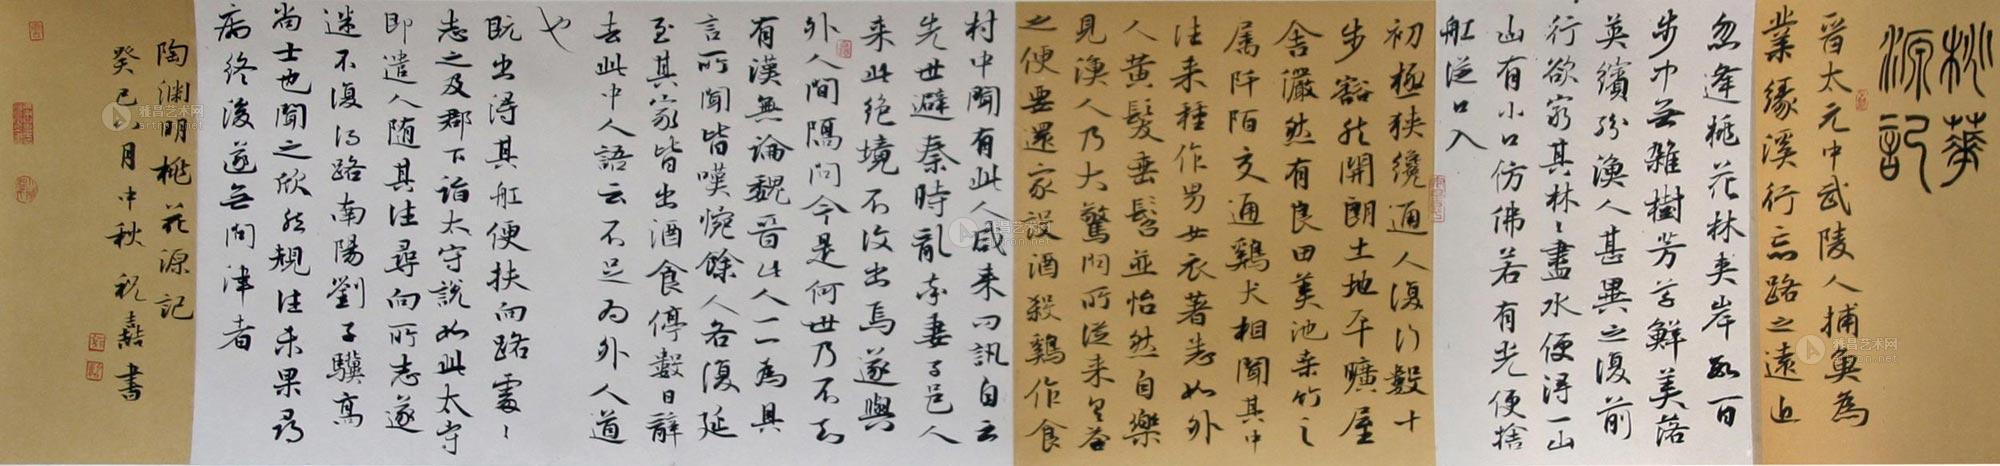 桃花
源记
晋太元中武陵人捕鱼为
業缘溪行忘路之遠近
忽逢桃花林夹岸數百
步中无雜樹芳草鮮美落
英繽紛漁人甚異之復前
行欲窮其林〻盡水便得一山
山有小口仿佛若有光便捨
舡従口入
初極狹纔通人復行數十
步豁然開朗土地平曠屋
舍儼然有良田美池桑竹之
属阡陌交通鷄犬相聞其中
往来種作男女衣著悉如外
人黄髮垂髫並怡然自樂
見漁人乃大驚問所従来具答
之便要還家設酒殺鷄作食
村中聞有此人咸来问訊自云
先世避秦時亂率妻子邑人
来此绝境不復出焉遂與
外人間隔问今是何世乃不知
有漢無論魏晋此人一一為具
言所聞皆嘆惋餘人各復延
至其家皆出酒食停數日辭
去此中人語云不足为外人道
也
既出得其舡便扶向路處〻
志之及郡下詣太守說如此太守
即遣人随其往尋向所志遂
迷不復得路南陽劉子驥高
尚士也聞之欣然規往未果尋
病终後遂无问津者
陶渊明桃花源记
癸巳八月中秋 祝嘉書
雅昌艺术网
artron.net
雅昌艺术网
artron.net
雅昌艺术网
artron.net
雅昌艺术网
artron.net